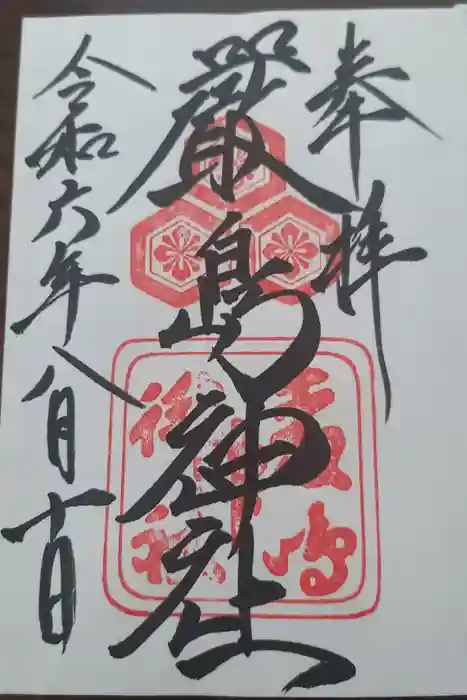 奉拝
嚴島神社
令和六年八月十日